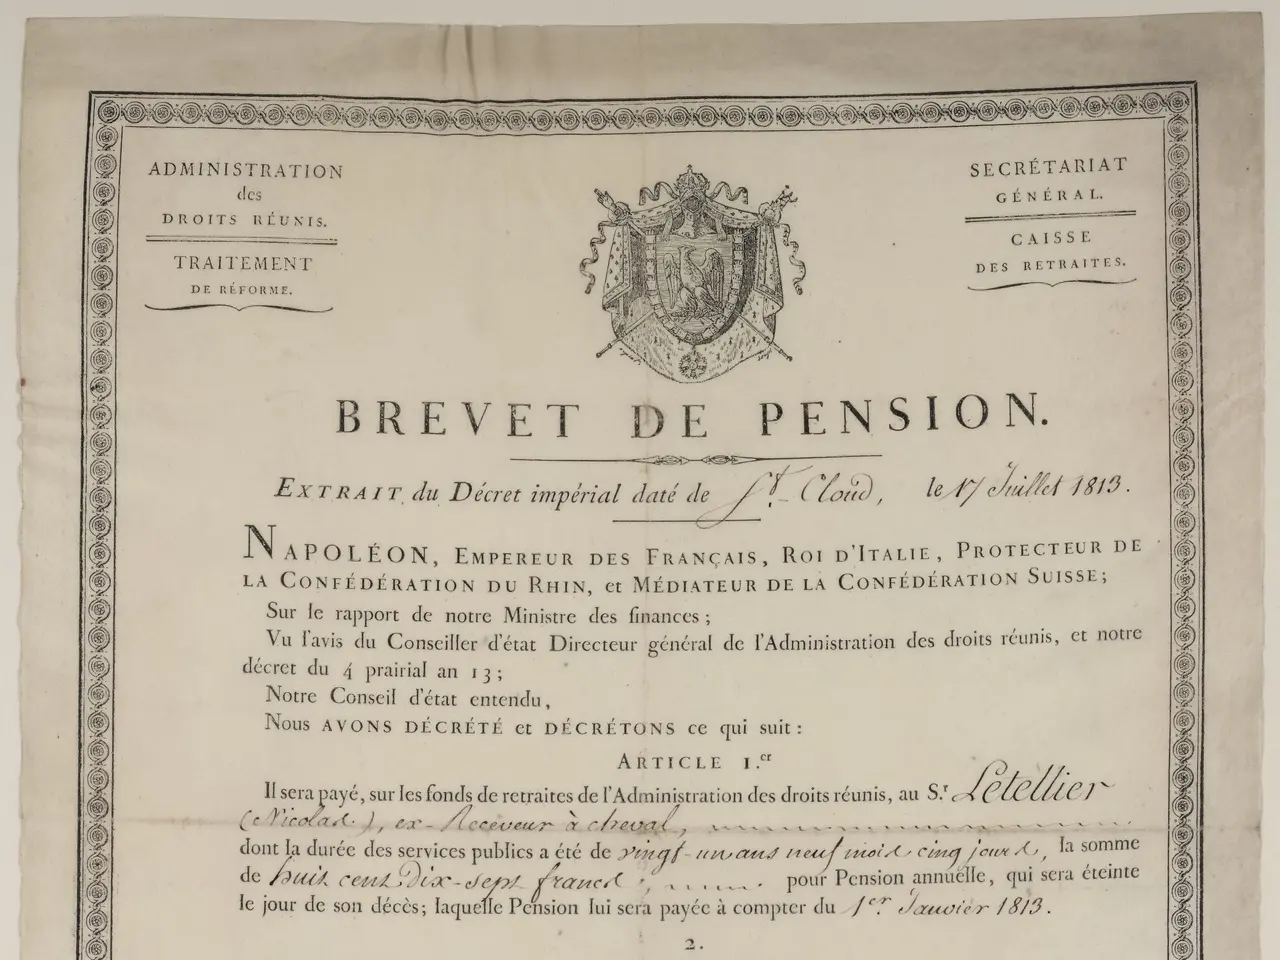 ADMINISTRATION
des
DROITS RÉUNIS.
TRAITEMENT
DE RÉFORME.
SECRÉTARIAT
GÉNÉRAL.
CAISSE
DES RETRAITES.
BREVET DE PENSION.
EXTRAIT du Décret impérial daté de St. Cloud, le 17 Juillet 1813.
NAPOLÉON, EMPEREUR DES FRANÇAIS, ROI D'ITALIE, PROTECTEUR DE
LA CONFÉDÉRATION DU RHIN, et MÉDIATEUR DE LA CONFÉDÉRATION SUISSE;
Sur le rapport de notre Ministre des finances;
Vu l'avis du Conseiller d'état Directeur général de l'Administration des droits réunis, et notre
décret du 4 prairial an 13;
Notre Conseil d'état entendu,
Nous AVONS DÉCRÉTÉ et DÉCRÉTONS ce qui suit:
ARTICLE 1.er
Il sera payé, sur les fonds de retraites de l'Administration des droits réunis, au S.r Letellier
(Nicolas.), ex-Receveur à cheval,
dont la durée des services publics a été de vingt-un ans neuf mois cinq jours, la somme
de huit cent Dix-sept francs; pour Pension annuelle, qui sera éteinte
le jour de son décès; laquelle Pension lui sera payée à compter du 1er. Janvier 1813.
2.